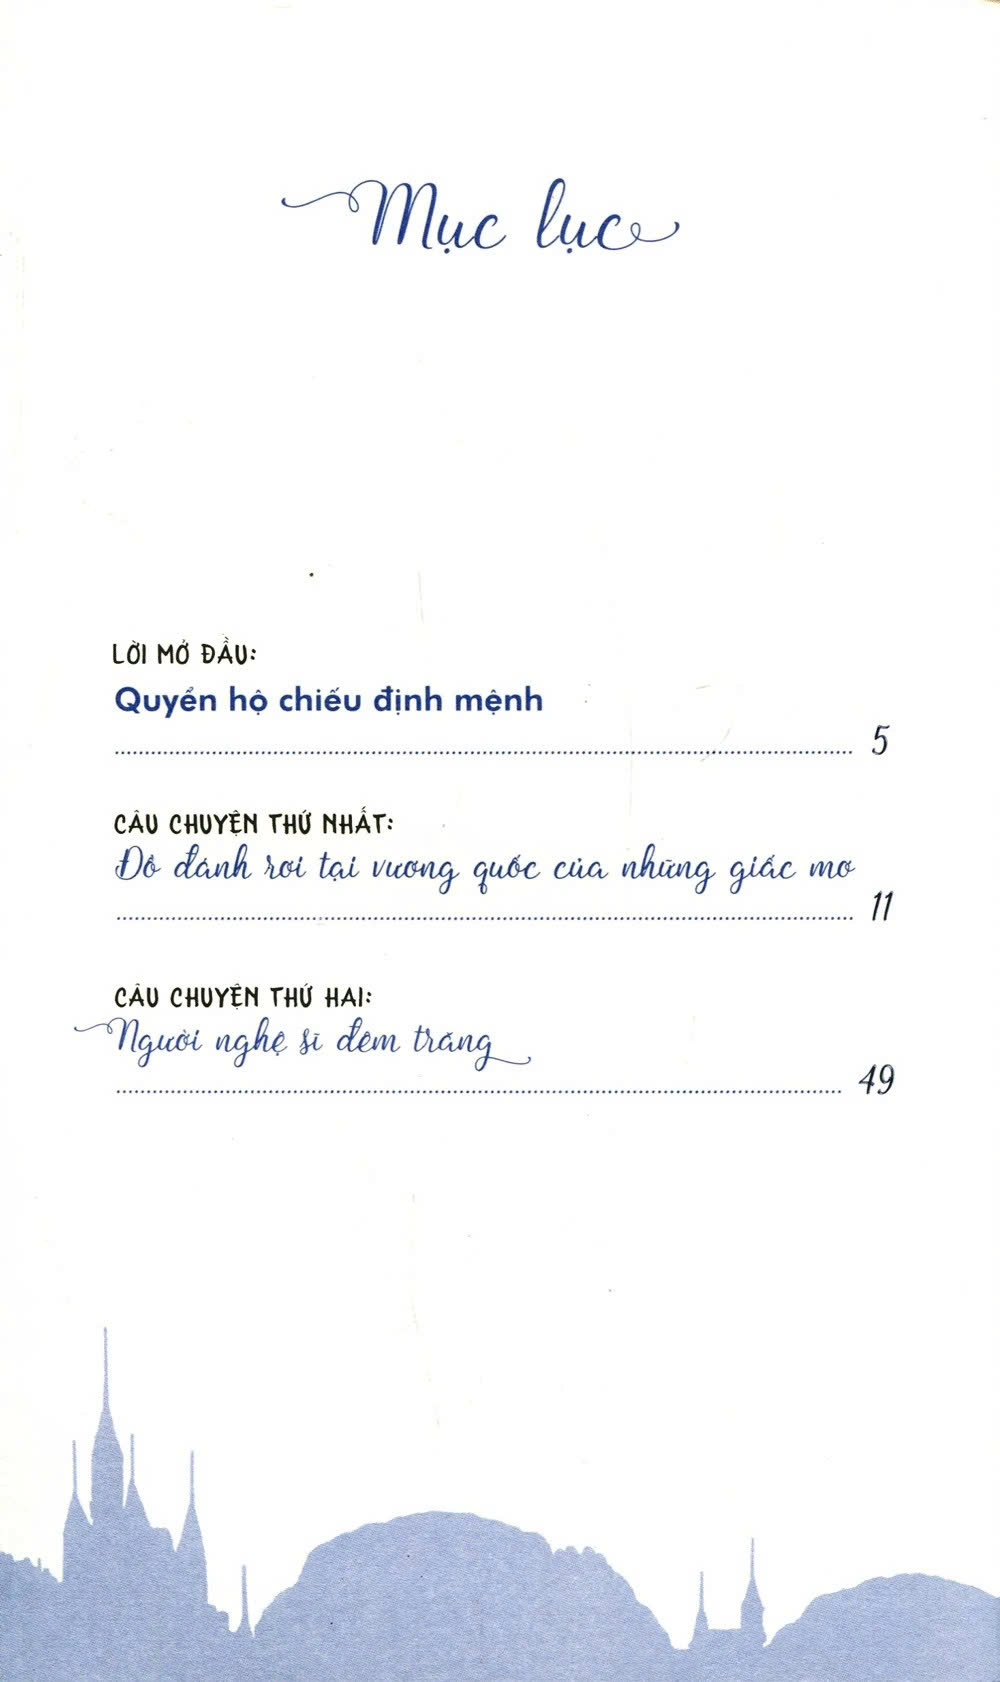 Mục lục
LỜI MỞ ĐẦU:
Quyển hộ chiếu định mệnh
5
CÂU CHUYỆN THỨ NHẤT:
Đồ đánh rơi tại vương quốc của những giấc mơ
11
CÂU CHUYỆN THỨ HAI:
Người nghệ sĩ đêm trăng
49